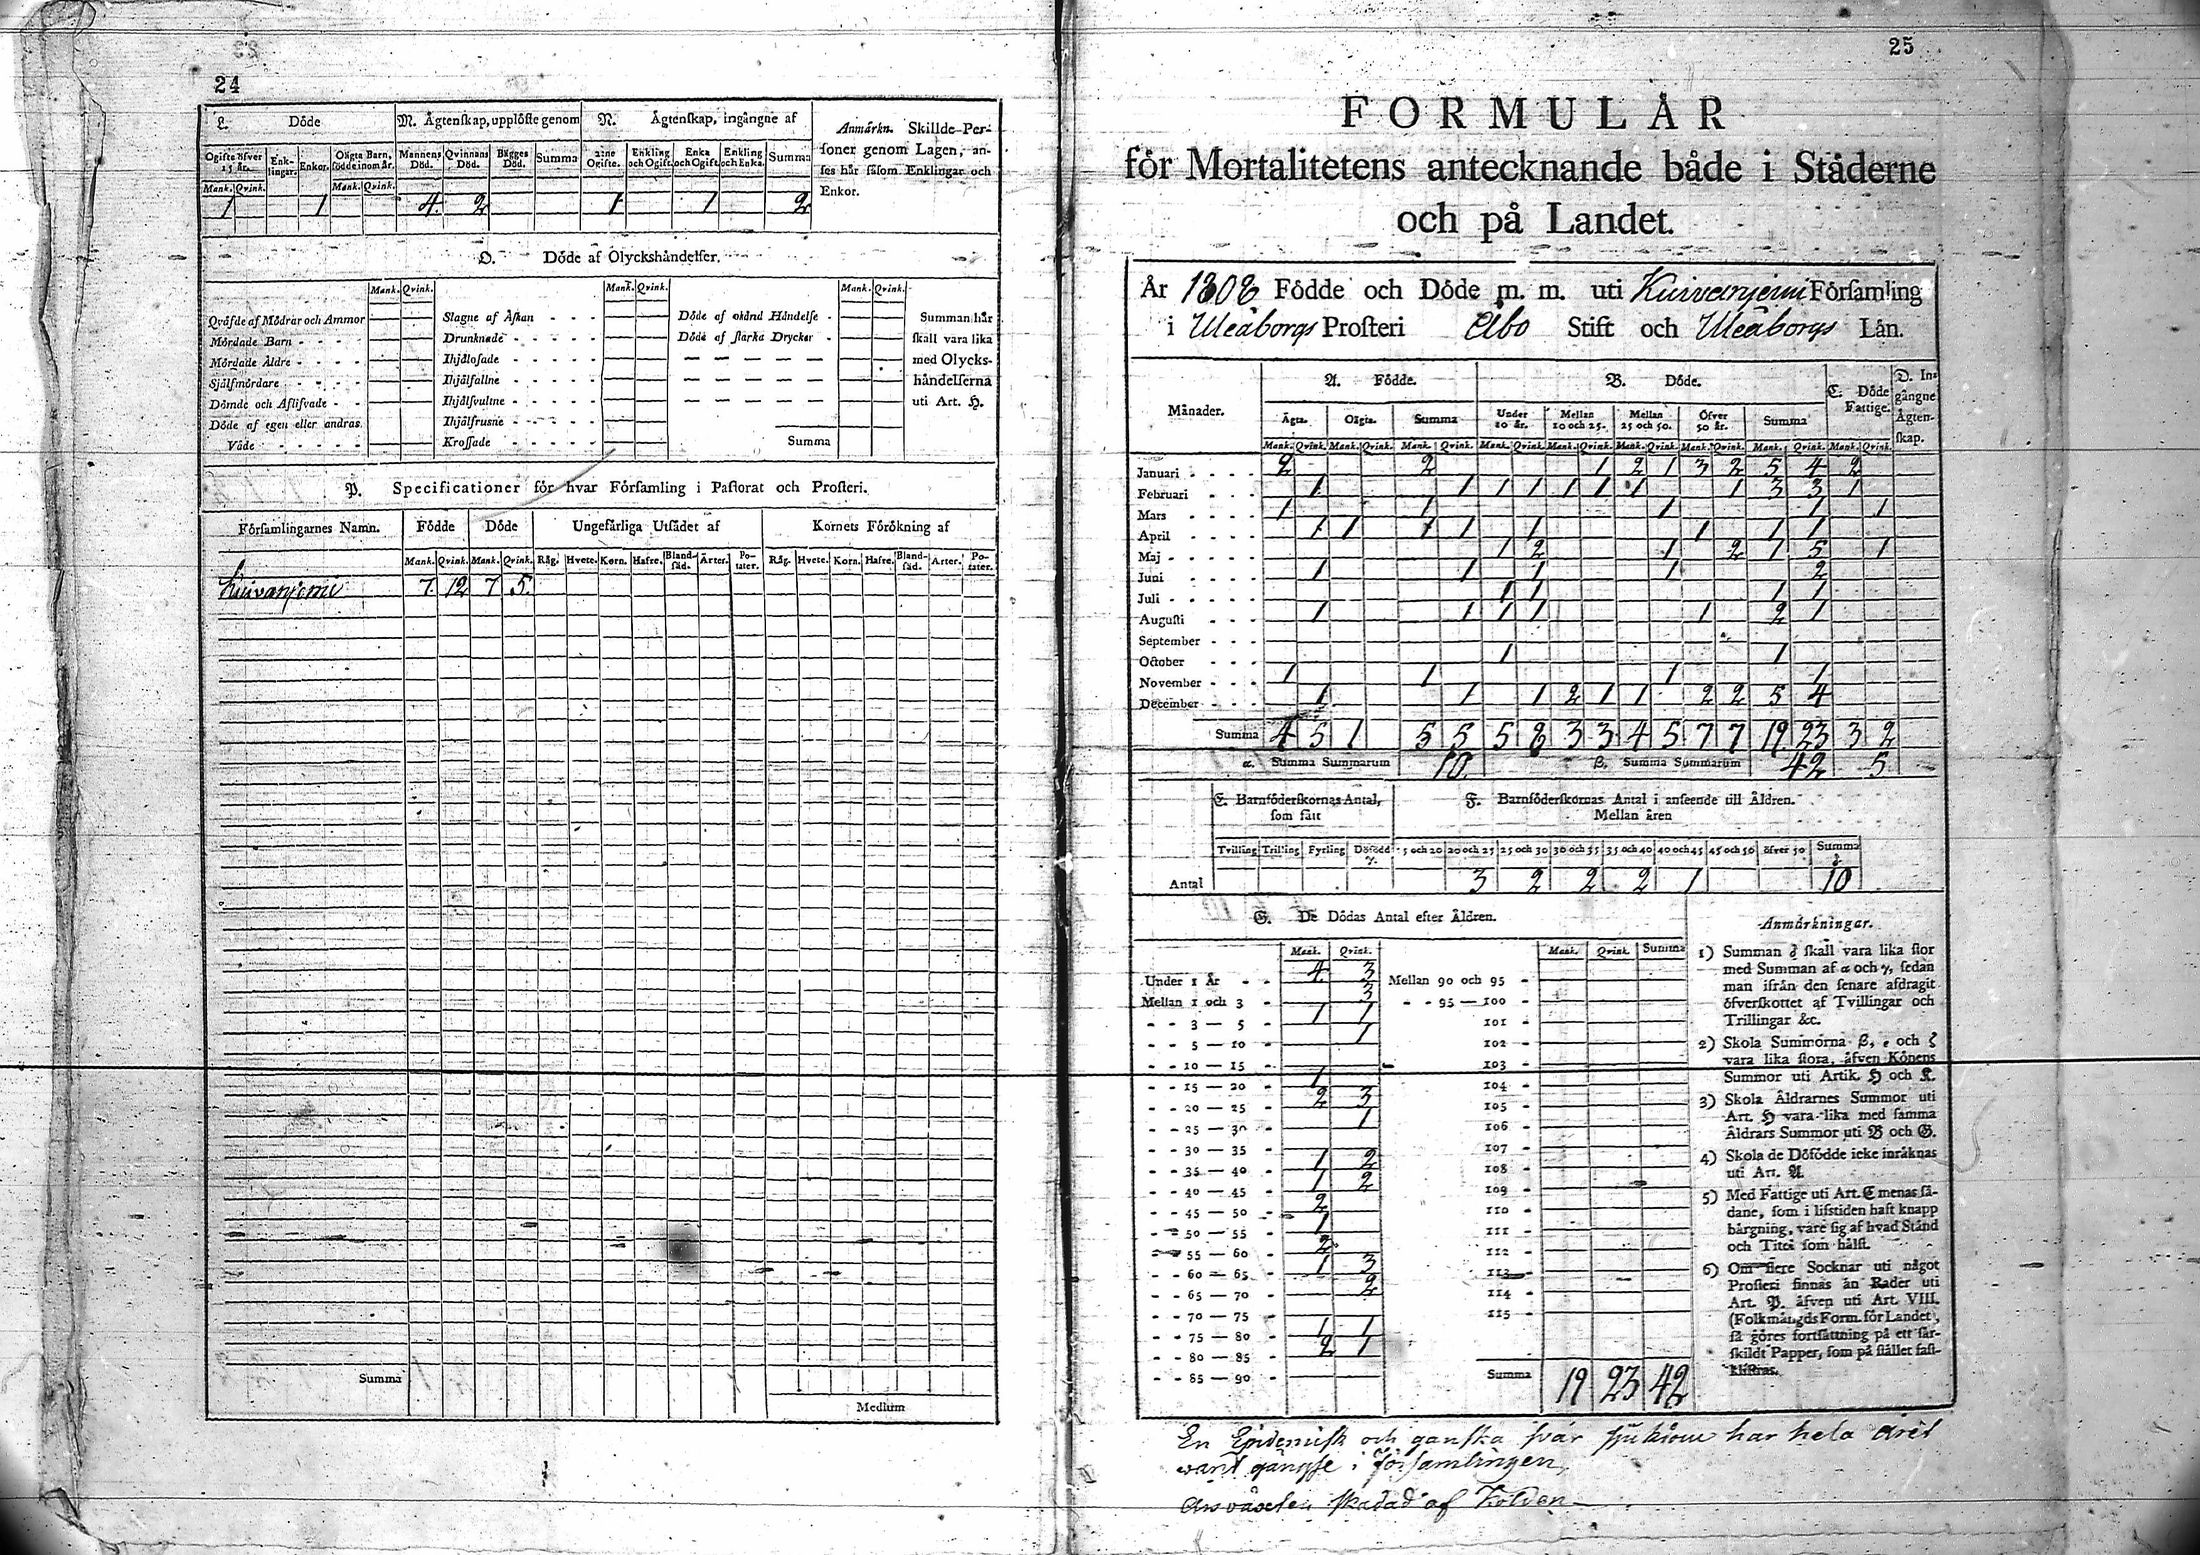 24
L. Döde
M. Ågtenskap, upplöste genom
N. Ågtenskap, ingångne af
Anmärkn. Skillde Per-
soner genom Lagen, an-
ses hår såsom Enklingar och
Enkor.
Ogifte öfver 15 år. Enk-lingar. Enkor. Oägta Barn, födde inom år. Mannens Död. Qvinnans Död. Bägges Död. Summa Ogifte. Enkling och Ogift. Enka och Ogift. Enkling och Enka. Summa
Mank. Qvink. Mank. Qvink.
1 1 4 2 1 1 2
O. Döde af Olyckshåndelser.
Mank. Qvink. Mank. Qvink. Mank. Qvink.
Qväfde af Mödrar och Ammor Slagne af Åskan Döde af okånd Håndelse Summan hår
Mördade Barn Drunknade Döde af starka Drycker skall vara lika
Mördade Äldre Ihjälosade med Olycks-
Självmördare Ihjälfallne håndelserna
Dömde och Aflifvade Ihjälsvultne uti Art. H.
Döde af egen eller andras Ihjälfrusne
Våde Krossade Summa
P. Specificationer för hvar Församling i Pastorat och Prosteri.
Församlingarnes Namn. Födde Döde Ungefårliga Utsådet af Kornets Förökning af
Mank. Qvink. Mank. Qvink. Råg. Hvete. Korn. Hafre. Bland-såd. Årter. Po-tater. Råg. Hvete. Korn. Hafre. Bland-såd. Arter. Po-tater.
Kuivanjemi 7 12 7 5
Summa
Medium
25
FORMULÅR
för Mortalitetens antecknande både i Ståderne
och på Landet.
År 1808 Födde och Döde m. m. uti Kuivanjemi Församling
i Uleåborgs Prosteri Åbo Stift och Uleåborgs Lån.
Månader. A. Födde. B. Döde. C. Döde Fattige. D. In-gångne Ågten-skap.
Ågta. Oågta. Summa Under 10 år. Mellan 10 och 25. Mellan 25 och 50. Öfver 50 år. Summa
Mank. Qvink. Mank. Qvink. Mank. Qvink. Mank. Qvink. Mank. Qvink. Mank. Qvink. Mank. Qvink. Mank. Qvink. Mank. Qvink.
Januari 2 2 1 2 1 3 2 5 4 2
Februari 1 1 1 1 1 1 1 1 3 3 1
Mars 1 1 1 1 1
April 1 1 1 1 1 1 1 1
Maj 1 2 1 2 1 5 1
Juni 1 1 1 1 2
Juli 1 1 1 1
Augusti 1 1 1 1 1 2 1
September
October 1 1
November 1 1 1 1
December 1 1 1 2 1 1 2 2 5 4
Summa 4 5 1 5 5 5 8 3 3 4 5 7 7 19 23 3 2
α. Summa Summarum 10 β. Summa Summarum 42 5
E. Barnföderskornas Antal, som fått
F. Barnföderskornas Antal i anseende till Åldren.
Mellan åren
Tvilling Trilling Fyrling Dödfödd γ. 15 och 20 20 och 25 25 och 30 30 och 35 35 och 40 40 och 45 45 och 50 öfver 50 Summa δ
Antal 3 2 2 2 1 10
G. De Dödas Antal efter Åldren.
Mank. Qvink. Mank. Qvink. Summa
Under 1 År 4 3 Mellan 90 och 95
Mellan 1 och 3 3 95 — 100
3 — 5 1 1 101
5 — 10 1 102
10 — 15 103
15 — 20 1 104
20 — 25 2 3 105
25 — 30 1 106
30 — 35 107
35 — 40 1 2 108
40 — 45 1 2 109
45 — 50 2 110
50 — 55 1 111
55 — 60 2 112
60 — 65 1 3 113
65 — 70 2 114
70 — 75 115
75 — 80 1 1
80 — 85 2 1
85 — 90 Summa 19 23 42
Anmärkningar.
1) Summan δ skall vara lika stor
med Summan af α och γ, sedan
man ifrån den senare afdragit
öfverskottet af Tvillingar och
Trillingar &c.
2) Skola Summorna β, ε och ζ
vara lika stora, åfven Könens
Summor uti Artik. H och K.
3) Skola Åldrarnes Summor uti
Art. H vara lika med samma
Åldrars Summor uti B och G.
4) Skola de Döfödde icke inråknas
uti Art. A.
5) Med Fattige uti Art. C menas så-
dane, som i lifstiden haft knapp
bårgning, vare sig af hvad Stånd
och Titel som hålst.
6) Om flere Socknar uti något
Prosteri finnas ån Rader uti
Art. P. åfven uti Art. VIII.
(Folkmångds Form. för Landet),
så göres fortsåttning på ett sår-
skildt Papper, som på stållet fast-
klistras.
En Epidemisk och ganska svår sjukdom har hela året
warit gängse i församlingen.
Årsväxten skadad af Kölden